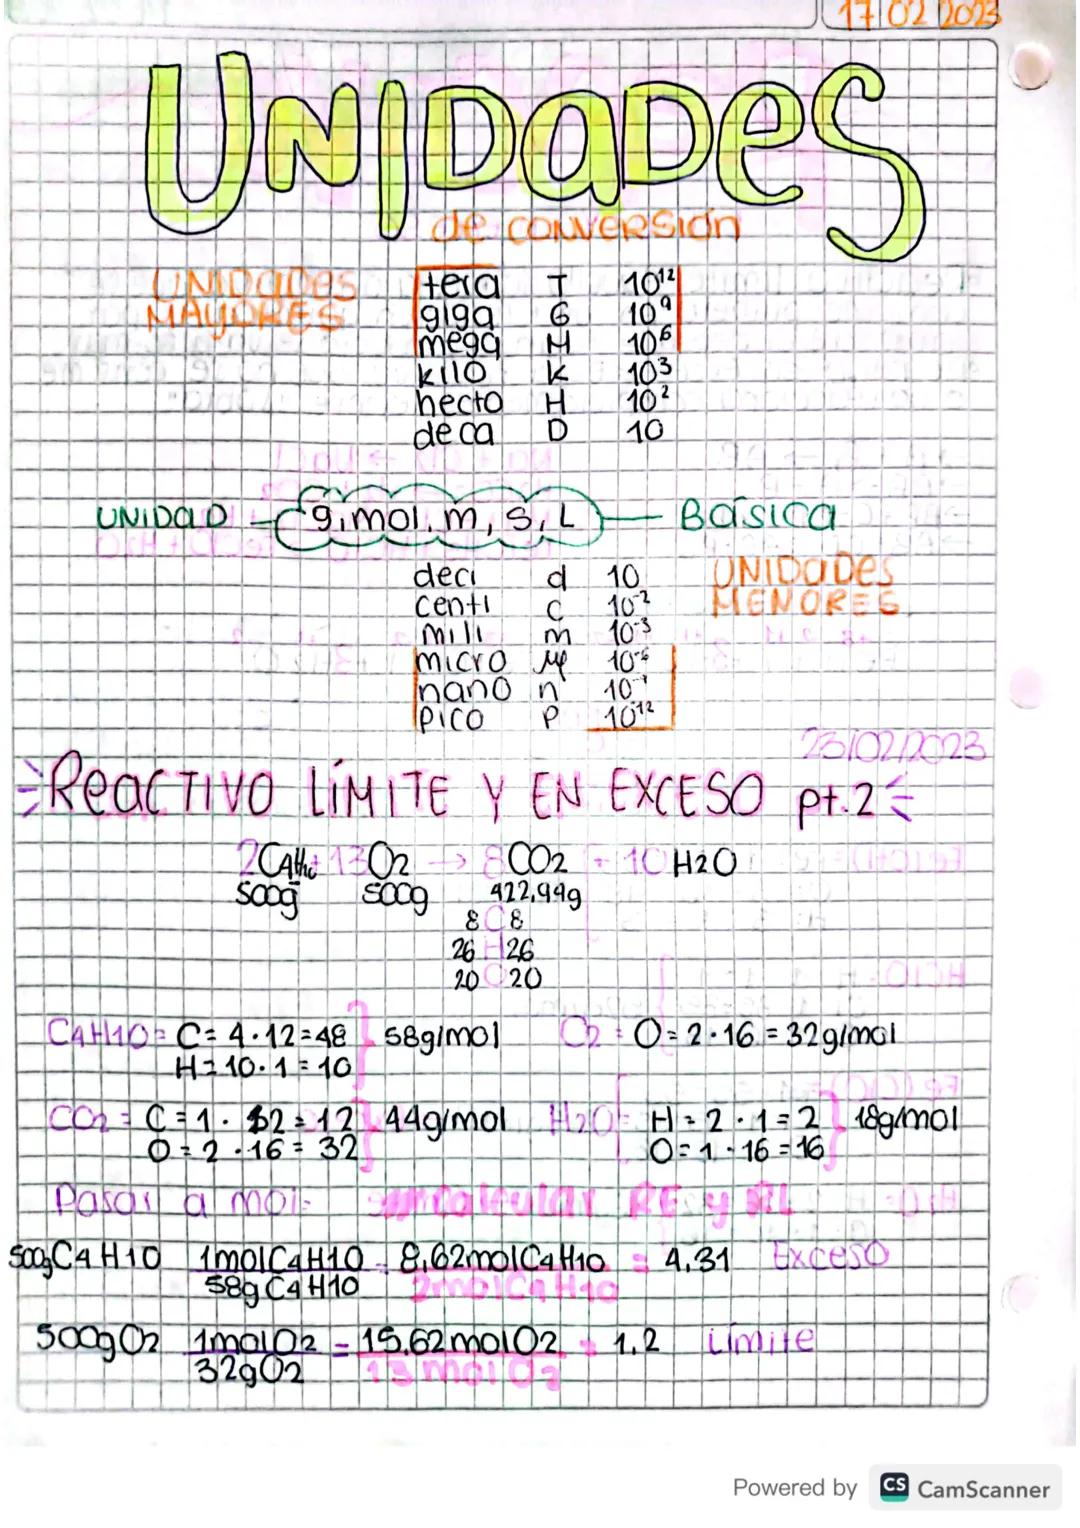 17/02/2023
UNIDADES
de CONVERSIÓN
UNIDADES
MAYORES
tera T 10¹²
giga G 10⁹
mega M 10⁶
kilo K 10³
hecto H 10²
deca D 10
UNIDAD g, mol, m, s, L Básica
deci d 10
centi c 10⁻²
mili m 10⁻³
micro 10⁻⁶
nano n
pico P 10⁻¹²
UNIDADES
MENORES
23/02/2023
REACTIVO LÍMITE Y EN EXCESO pt.2
2C4H10 + 13O2 → 8CO2 + 10H2O
500g 500g 422,99g
8 C 8
26 H 26
20 O 20
C4H10 = C = 4 · 12 = 48 58g/mol
H = 10 · 1 = 10
O2 = O = 2 · 16 = 32g/mol
CO2 = C = 1 · 12 = 12 44g/mol
O = 2 · 16 = 32
H2O = H = 2 · 1 = 2 18g/mol
O = 1 · 16 = 16
Pasar a mol calcular RE y RL
500g C4H10 1mol C4H10 = 8,62mol C4H10 = 4,31 Exceso
58g C4H10 2mol C4H10
500g O2 1mol O2 = 15,62mol O2 = 1,2 Límite
32g O2 13 mol O2
Powered by CS CamScanner